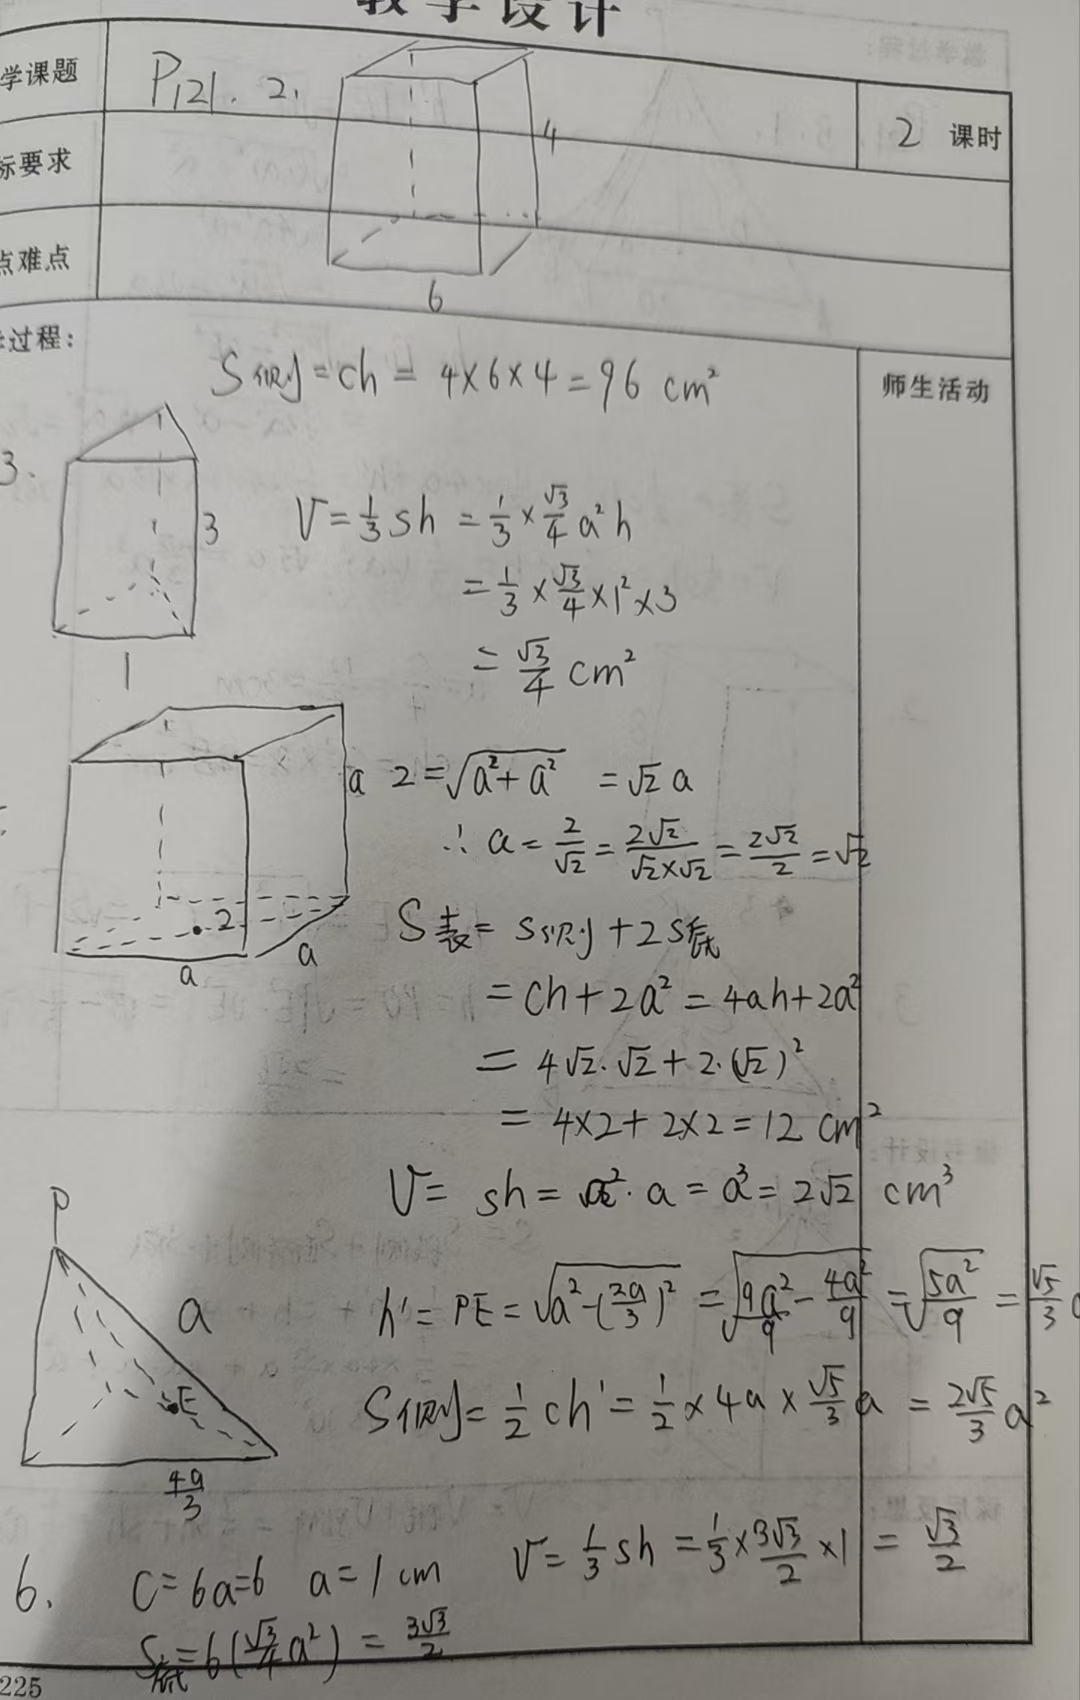 教学设计
学课题
P121. 2.
4
2 课时
标要求
点难点
6
过程:
师生活动
S侧=ch=4×6×4=96 cm²
3.
3
1
V=1/3 sh=1/3×√3/4 a²h
=1/3×√3/4×1²×3
=√3/4 cm²
a
2
a
a
2=√(a²+a²) =√2 a
∴ a=2/√2=2√2/(√2×√2)=2√2/2=√2
S表=S侧+2S底
=ch+2a²=4ah+2a²
=4√2·√2+2·(√2)²
=4×2+2×2=12 cm²
V=sh=a²·a=a³=2√2 cm³
P
a
E
4a/3
h'=PE=√(a²-(2a/3)²)=√(9a²/9-4a²/9)=√(5a²/9)=√5/3 a
S侧=1/2 ch'=1/2×4a×√5/3 a=2√5/3 a²
6. C=6a=6 a=1cm V=1/3 sh=1/3×3√3/2×1=√3/2
S底=6(√3/4 a²)=3√3/2
225